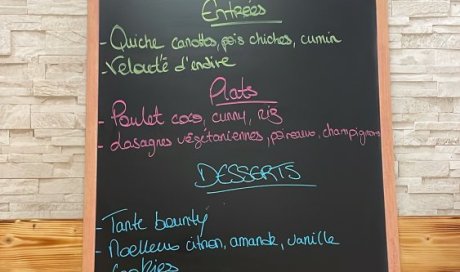 Entrées
- Quiche carottes, pois chiches, cumin
- Velouté d'endive
Plats
- Poulet coco, curry, riz
- Lasagnes végétariennes, poireaux, champignons
DESSERTS
- Tarte bounty
- Moelleux citron, amande, vanille
- Cookies